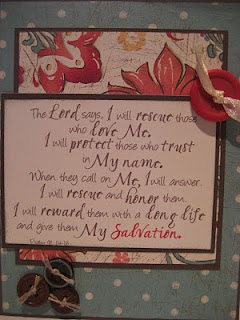 The Lord says, I will rescue those
who love Me.
I will protect those who trust
in My name.
When they call on Me, I will answer.
I will rescue and honor them.
I will reward them with a long life
and give them My Salvation.
Psalm 91:14-16